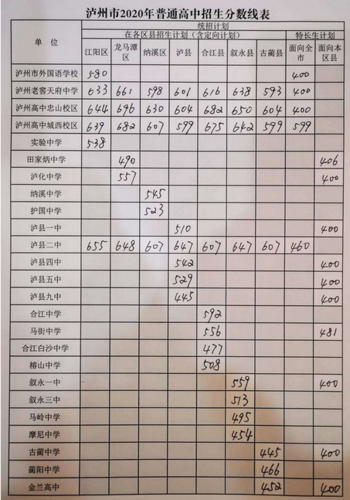 泸州市2020年普通高中招生分数线表
统招计划 特长生计划
在各区县招生计划(含定向计划)
江阳区 龙马潭区 纳溪区 泸县 合江县 叙永县 古蔺县 面向全市 面向本区县
泸州市外国语学校 580 400
泸州老窖天府中学 633 661 598 601 616 638 593 400
泸州高中忠山校区 644 696 630 604 682 650 604 400
泸州高中城西校区 639 682 607 599 675 642 599 599
实验中学 538
田家炳中学 490 406
泸化中学 557 400
纳溪中学 545
护国中学 523
泸县一中 510 400
泸县二中 655 648 607 647 607 647 607 460
泸县四中 542 400
泸县五中 529 400
泸县九中 445 400
合江中学 592
马街中学 556 481
合江白沙中学 477
榕山中学 508
叙永一中 559 400
叙永三中 513
马岭中学 495
摩尼中学 454
古蔺中学 445 400
蔺阳中学 466
金兰高中 452 400